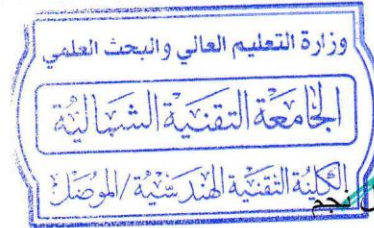 وزارة التعليم العالي والبحث العلمي
الجامعة التقنية الشمالية
الكلية التقنية الهندسية / الموصل
نجم